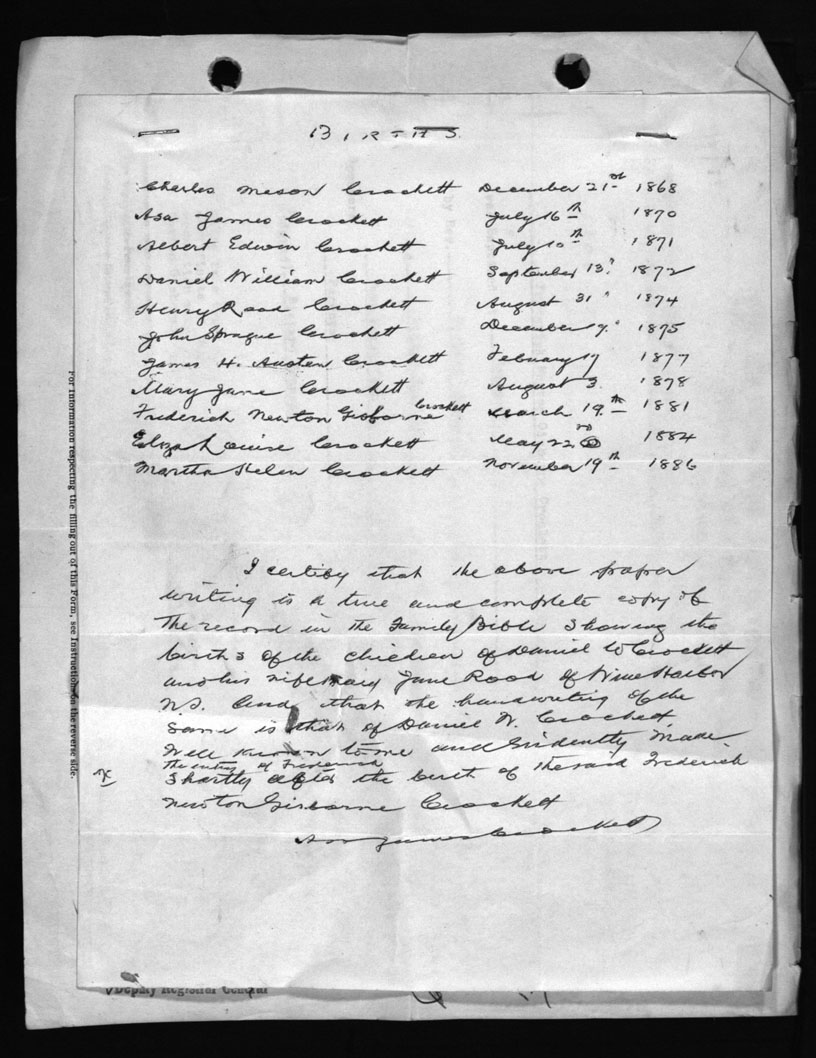 BIRTHS
Charles Meson Crockett December 21st 1868
Asa James Crockett July 16th 1870
Albert Edwin Crockett July 10th 1871
Daniel William Crockett September 13. 1872
Henry Rood Crockett August 31 1874
John Sprague Crockett December 9. 1875
James H. Austen Crockett Febuary 17 1877
Mary Jane Crockett August 3 1878
Frederick Newton Gisborne Crockett March 19th 1881
Eliza Louise Crockett May 22nd 1884
Martha Helen Crockett November 19th 1886
I certify that the above paper
writing is a true and complete copy of
the record in the Family Bible Showing the
births of the children of Daniel W Crockett
and his wife Jane Rood of Wine Harbor
N.S. And that the handwriting of the
same is that of Daniel W. Crockett,
Well known to me and Evidently Made
The entry of Frederick
x Shortly after the birth of the said Frederick
Newton Gisborne Crockett
Asa James Crockett
For Information respecting the filling out of this Form, see Instructions on the reverse side.
Deputy Registrar General